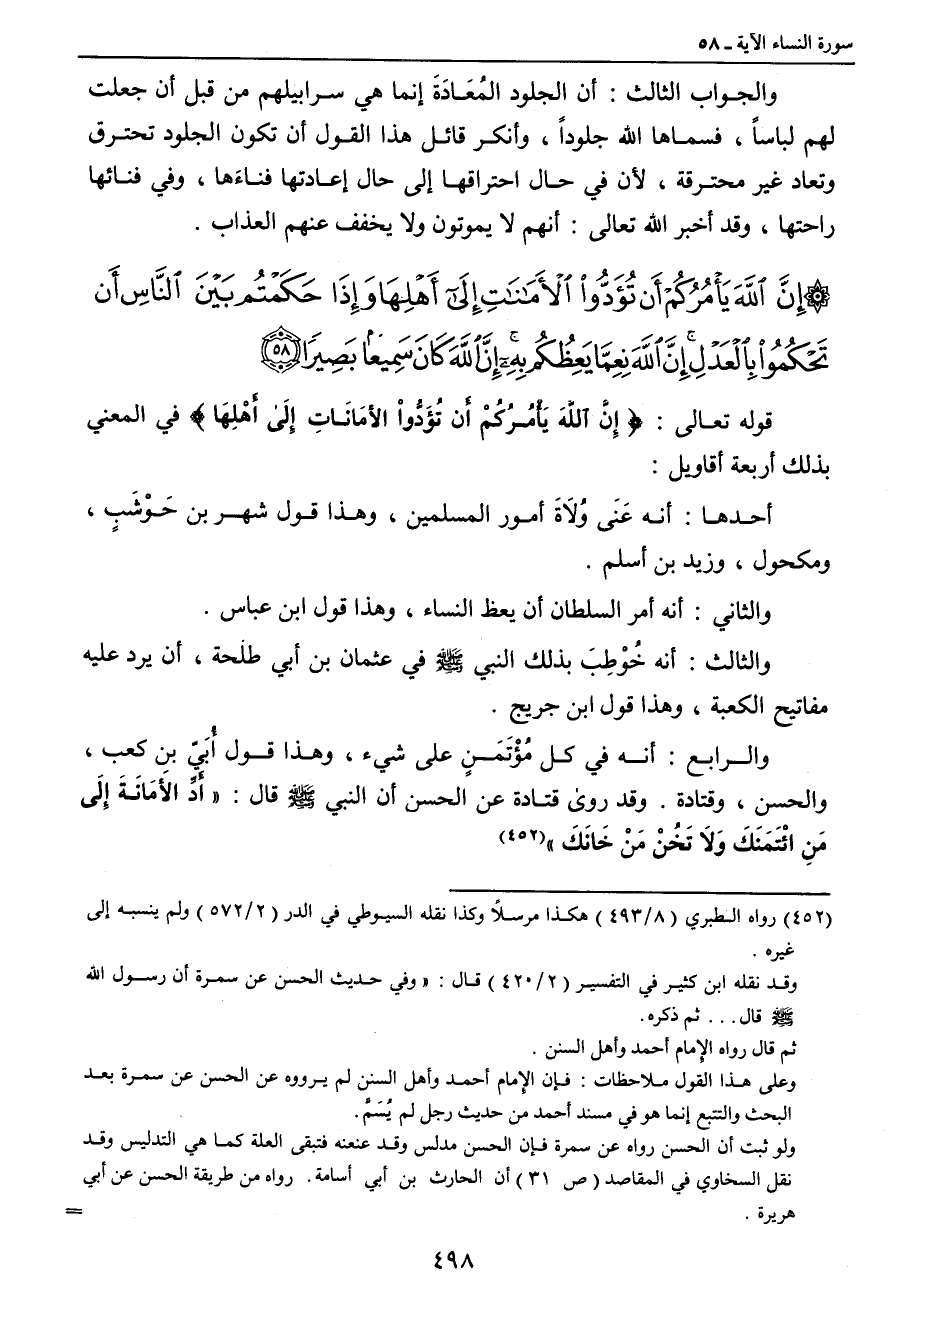 سورة النساء الآية ـ ٥٨
والجواب الثالث : أن الجلود المُعَادَةَ إنما هي سرابيلهم من قبل أن جعلت
لهم لباساً ، فسماها الله جلوداً ، وأنكر قائل هذا القول أن تكون الجلود تحترق
وتعاد غير محترقة ، لأن في حال احتراقها إلى حال إعادتها فناءَها ، وفي فنائها
راحتها ، وقد أخبر الله تعالى : أنهم لا يموتون ولا يخفف عنهم العذاب .
۞ إِنَّ ٱللَّهَ يَأْمُرُكُمْ أَن تُؤَدُّوا۟ ٱلْأَمَـٰنَـٰتِ إِلَىٰٓ أَهْلِهَا وَإِذَا حَكَمْتُم بَيْنَ ٱلنَّاسِ أَن
تَحْكُمُوا۟ بِٱلْعَدْلِ ۚ إِنَّ ٱللَّهَ نِعِمَّا يَعِظُكُم بِهِۦٓ ۚ إِنَّ ٱللَّهَ كَانَ سَمِيعًۢا بَصِيرًا ٥٨
قوله تعالى : ﴿ إِنَّ ٱللَّهَ يَأْمُرُكُمْ أَن تُؤَدُّواْ الأَمَانَاتِ إِلَىٰ أَهْلِهَا ﴾ في المعني
بذلك أربعة أقاويل :
أحدها : أنه عَنَى وُلَاةَ أمور المسلمين ، وهذا قول شهر بن حَوْشَبٍ ،
ومكحول ، وزيد بن أسلم .
والثاني : أنه أمر السلطان أن يعظ النساء ، وهذا قول ابن عباس .
والثالث : أنه خُوْطِبَ بذلك النبي ﷺ في عثمان بن أبي طلحة ، أن يرد عليه
مفاتيح الكعبة ، وهذا قول ابن جريج .
والرابع : أنه في كل مُؤْتَمَنٍ على شيء ، وهذا قول أُبَيّ بن كعب ،
والحسن ، وقتادة . وقد روىٰ قتادة عن الحسن أن النبي ﷺ قال : « أَدِّ الأَمَانَةَ إِلَى
مَنِ ائْتَمَنَكَ وَلَا تَخُنْ مَنْ خَانَكَ »(٤٥٢)
(٤٥٢) رواه الطبري ( ٨/ ٤٩٣) هكذا مرسلاً وكذا نقله السيوطي في الدر ( ٢/ ٥٧٢) ولم ينسبه إلى
غيره .
وقد نقله ابن كثير في التفسير ( ٢/ ٤٢٠) قال : « وفي حديث الحسن عن سمرة أن رسول الله
ﷺ قال . . . ثم ذكره .
ثم قال رواه الإمام أحمد وأهل السنن .
وعلى هذا القول ملاحظات : فإن الإمام أحمد وأهل السنن لم يرووه عن الحسن عن سمرة بعد
البحث والتتبع إنما هو في مسند أحمد من حديث رجل لم يُسَمَّ .
ولو ثبت أن الحسن رواه عن سمرة فإن الحسن مدلس وقد عنعنه فتبقى العلة كما هي التدليس وقد
نقل السخاوي في المقاصد ( ص ٣١ ) أن الحارث بن أبي أسامة . رواه من طريقة الحسن عن أبي
هريرة . =
٤٩٨